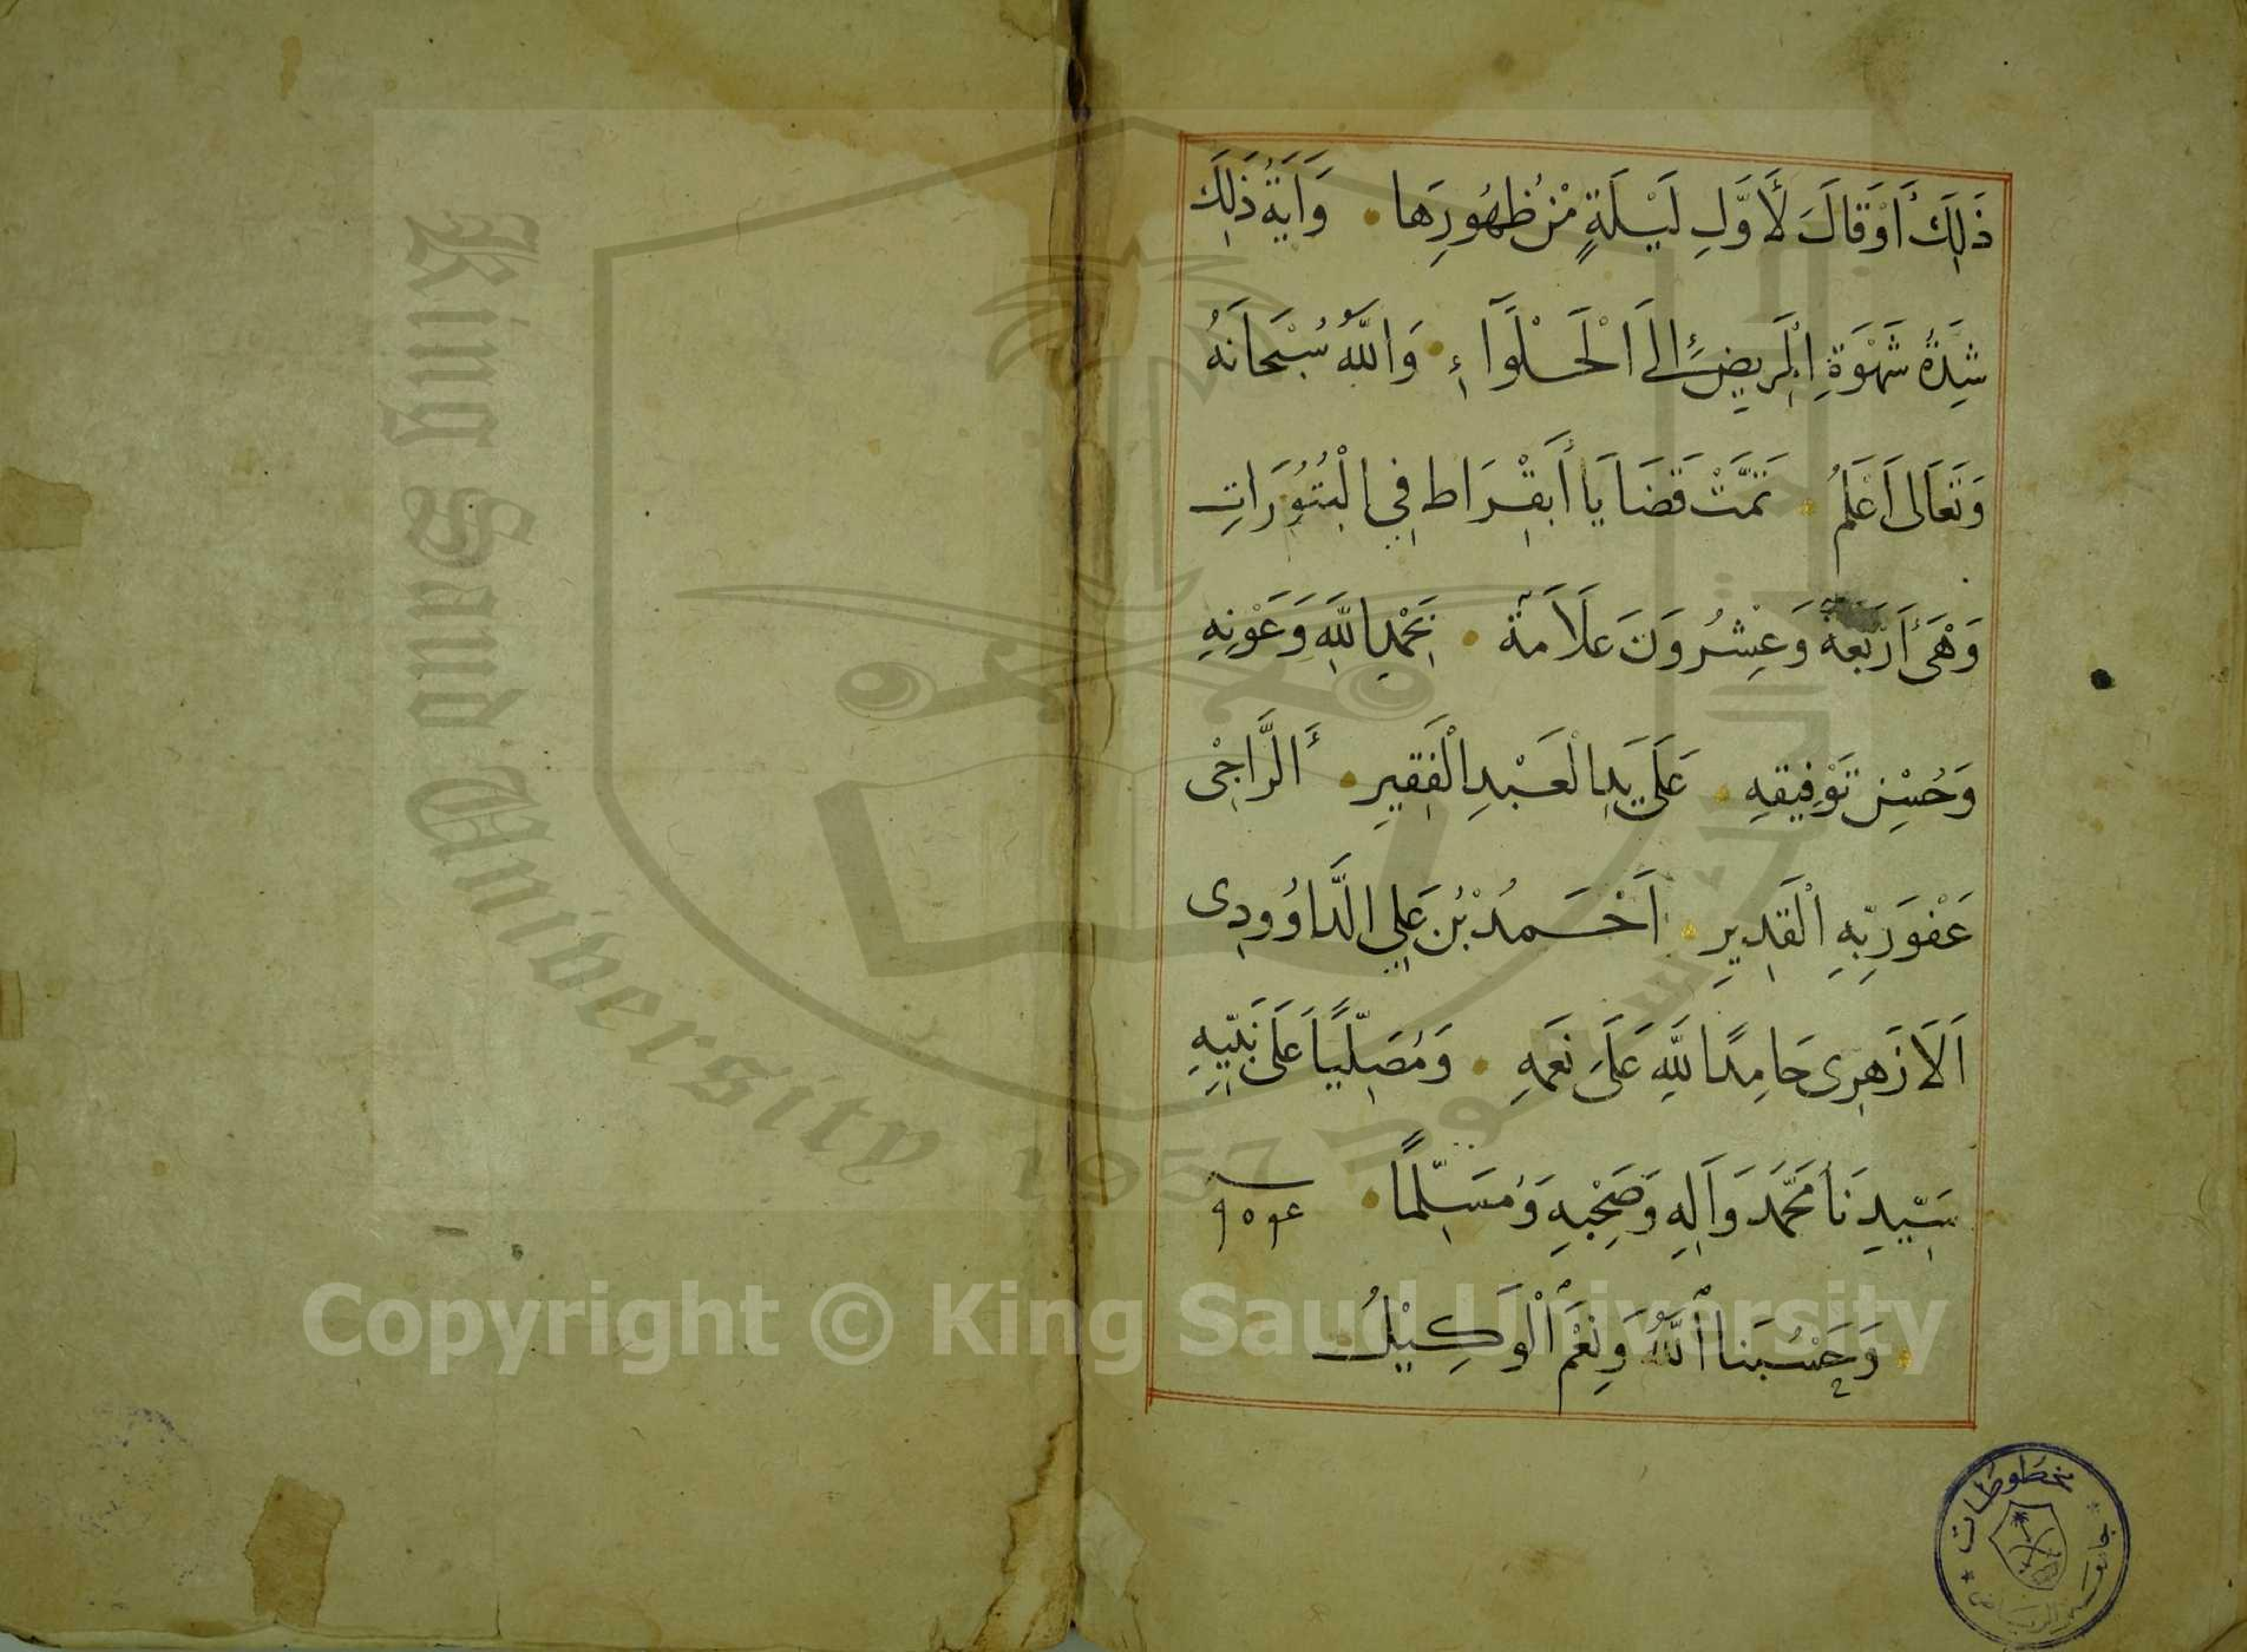 ذَلِكَ أَوْ قَالَ لِأَوَّلِ لَيْلَةٍ مِنْ ظُهُورِهَا • وَآيَةُ ذَلِكَ
شِدَّةُ شَهْوَةِ الْمَرِيضِ إِلَى الْحَلْوَآءِ • وَاللَّهُ سُبْحَانَهُ
وَتَعَالَى أَعْلَمُ • تَمَّتْ قَضَايَا أَبُقْرَاط فِي الْبُثُورَاتِ
وَهْيَ أَرْبَعَةٌ وَعِشْرُونَ عَلَامَةً • بِحَمْدِ اللَّهِ وَعَوْنِهِ
وَحُسْنِ تَوْفِيقِهِ • عَلَى يَدِ الْعَبْدِ الْفَقِيرِ • الرَّاجِي
عَفْوَ رَبِّهِ الْقَدِيرِ • أَحْمَدُ بْنُ عَلِي الدَّاوُودِى
الَازْهَرِى حَامِدًا لِلَّهِ عَلَى نِعَمِهِ • وَمُصَلِّيًا عَلَى نَبِيِّهِ
سَيِّدِنَا مُحَمَّد وَآلِهِ وَصَحْبِهِ وَمُسَلِّمًا •
• وَحَسْبُنَا اللَّهُ وَنِعْمَ الْوَكِيْلُ
مخطوطات
جامعة الرياض
King Saud University
1957
Copyright © King Saud University